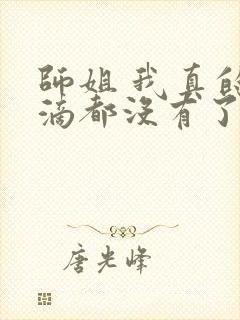 師姐我真的
滴都沒有了
唐光峰